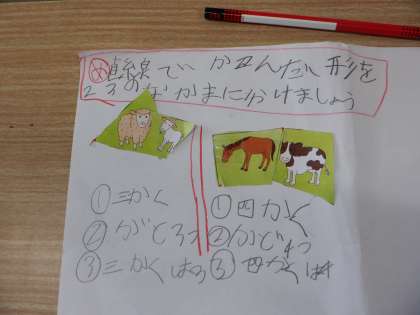 め 直線で かこんだ 形を
2つのなかまに分けましょう
①三かく
②かど3つ
③三かく
①四かく
②かど4つ
③四かく